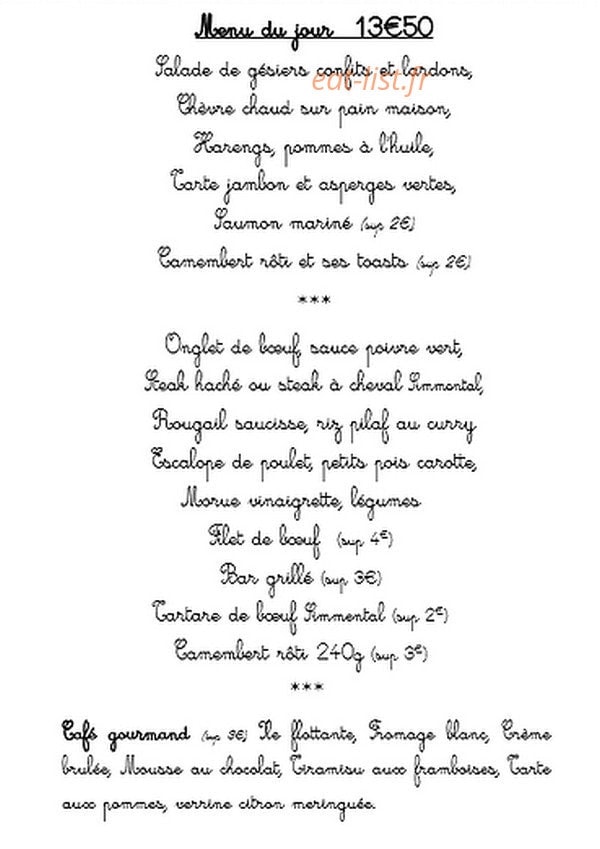 Menu du jour 13€50
Salade de gésiers confits et lardons,
eat-list.fr
Chèvre chaud sur pain maison,
Harengs, pommes à l'huile,
Tarte jambon et asperges vertes,
Saumon mariné (sup 2€)
Camembert rôti et ses toasts (sup 2€)
***
Onglet de bœuf, sauce poivre vert,
Steak haché ou steak à cheval Simmental,
Rougail saucisse, riz pilaf au curry
Escalope de poulet, petits pois carotte,
Morue vinaigrette, légumes
Filet de bœuf (sup 4€)
Bar grillé (sup 3€)
Tartare de bœuf Simmental (sup 2€)
Camembert rôti 240g (sup 3€)
***
Café gourmand (sup 3€) Ile flottante, Fromage blanc, Crème
brulée, Mousse au chocolat, Tiramisu aux framboises, Tarte
aux pommes, verrine citron meringuée.